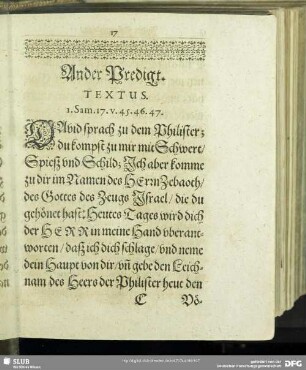 17
Ander Predigt.
TEXTUS.
1. Sam. 17. v. 45. 46. 47.
DAvid sprach zu dem Philister;
du kompst zu mir mit Schwert/
Spieß vnd Schild; Jch aber komme
zu dir im Namen des HErrn Zebaoth/
des Gottes des Zeugs Jsrael/ die du
gehönet hast: Heutes Tages wird dich
der HERR in meine Hand vberant-
worten/ daß ich dich schlage/ vnd neme
dein Haupt von dir/ vn̄ gebe den Leich-
nam des Heers der Philister heut den
C Vö-
SLUB
DFG